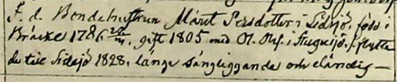 F. d. Bondehustrun Märet Persdotter i Sidsjö född i
Bräcke 1786 gift 1805 med Ol. Olofs. i Stugusjö, flytta
de till Sidsjö 1828, länge sängliggande och eländig —